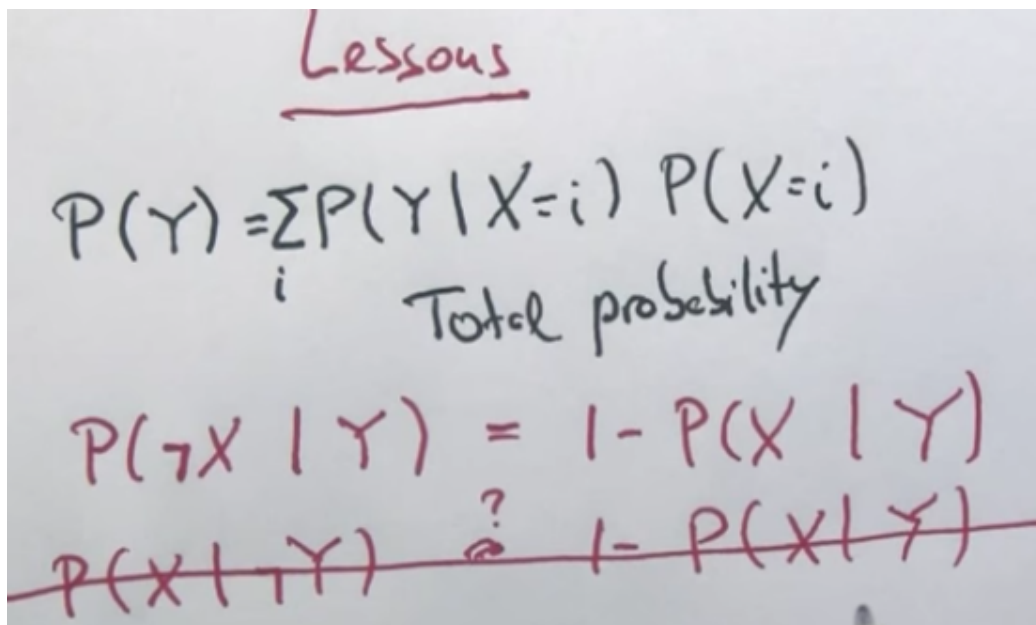 Lessons
P(Y) = Σ P(Y | X=i) P(X=i)
i
Total probability
P(¬X | Y) = 1 - P(X | Y)
?
P(X | ¬Y) = 1 - P(X | Y)